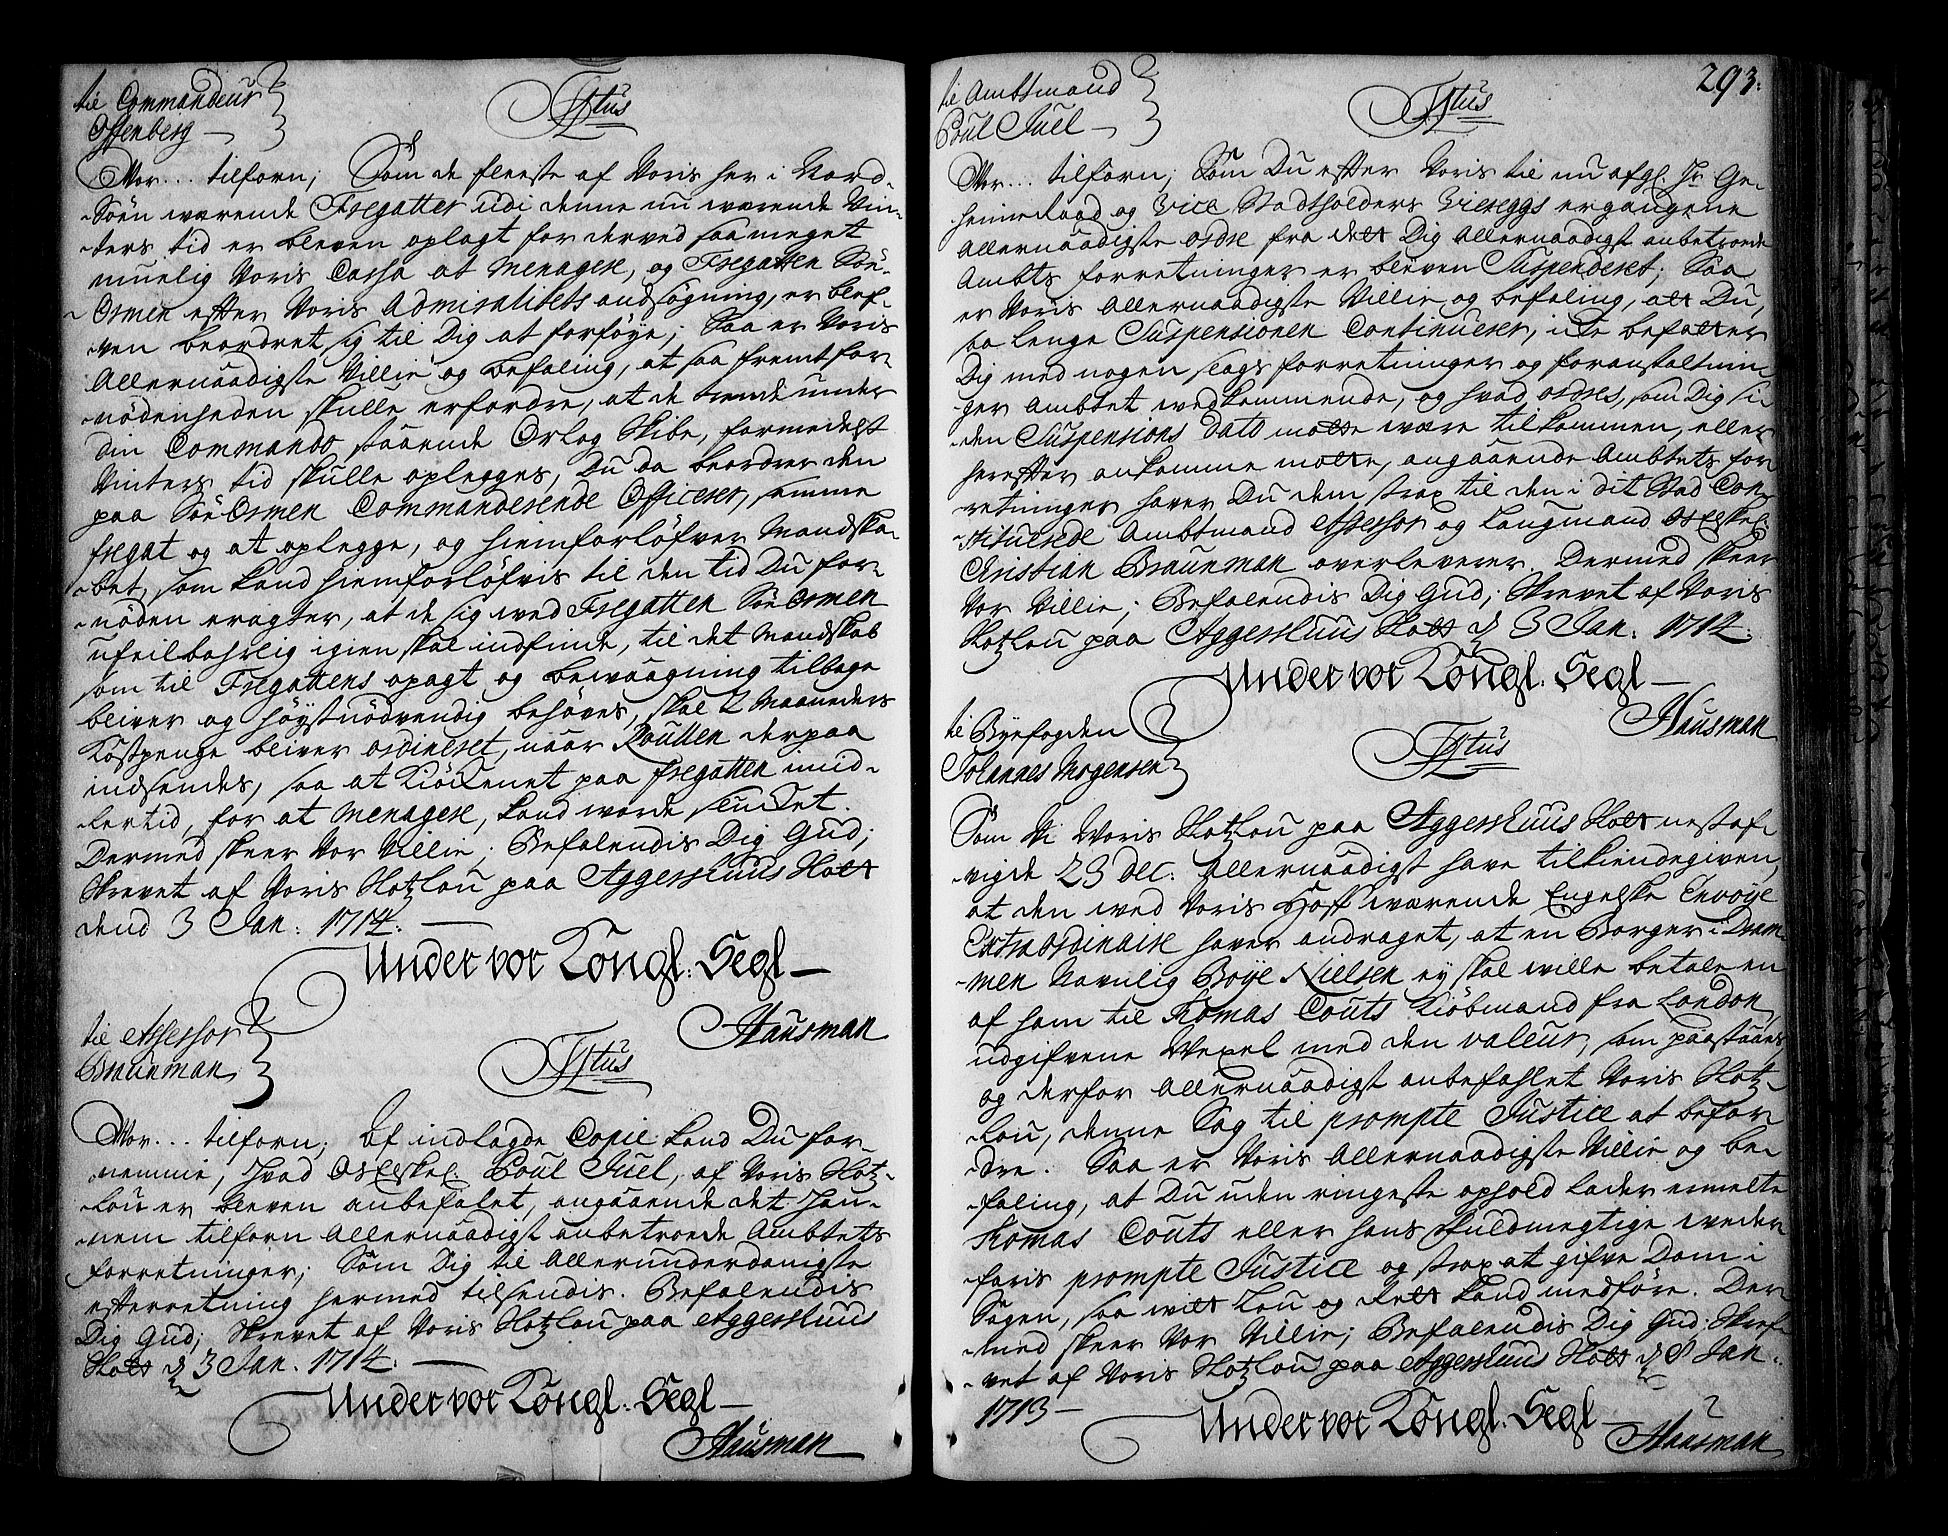 til Commandeur
Offenberg
Ftus
Vor... tilforn; Som de fleeste af Voris her i Nord-
Søen wærende Fregatter udi denne nu wærende Vin-
ters tid er bleven oplagt for derved saa meget
muelig Voris Cassa at menagere, og Fregatten Søe-
Ormen efter Voris Admiralitets andsøgning, er blef-
ven beordret sig til Dig at forføye; Saa er Voris
Allernaadigste Villie og befaling, at saa fremt for-
nødenheden skulle erfordre, at de trende under
Din Commando staaende Orlog Skibe, formedelst
Vinters tid skulle oplegges, Du da beordrer den
paa SøeOrmen Commanderende Officerer, samme
fregat og at oplegge, og hiemforløfver Mandska-
bet, som kand hiemforløfvis til den tid Du for-
nøden eragter, at de sig wed Fregatten SøeOrmen
ufeilbahrlig igien skal indfinde, til det Mandskab
som til Fregattens opagt og bewaagning tilbage
bliver og høystnødvendig behøves, skal 2 Maaneders
Kostpenge bliver ordineret, naar Roullen derpaa
indsendes, saa at Kiøckenet paa fregatten imid-
lertid, for at menagere, kand worde slucket.
Dermed skeer Vor Villie. Befalendis Dig Gud;
Skrevet af Voris Slotzlou paa Aggershuus Slott
dend 3 Jan: 1714.
Under vor Kongl: Segl
Hausman
til Assessor
Braunman
Ftus
Vor... tilforn; Af indlagde Copie kand Du for-
nemmie, hvad OsElskel. Poul Juel, af Voris Slotz-
Lou er bleven anbefalet, angaaende det han-
nem tilforn Allernaadigst anbetroede Ambtets
forretninger; Som Dig til Allerunderdanigste
efterretning hermed tilsendis. Befalendis
Dig Gud; Skrevet af Voris Slotzlou paa Aggershuus
Slott d 3 Jan. 1714.
Under vor Kongl: Segl
Hausman
293.
til Ambtmand
Poul Juel
Ftus
Vor... tilforn; Som Du efter Voris til nu afgl. Hr Ge-
heimeRaad og Vice Stadtholders Viereggs ergangene
Allernaadigste ordre fra dett Dig Allernaadigst anbetroede
Ambts forretninger er bleven Suspenderet; Saa
er Voris Allernaadigste Villie og befaling, att Du,
sa lenge Suspensionen Continuerer, icke befatter
Dig med nogen slags forretninger og foranstaltnin-
ger Ambtet wedkommende, og hvad ordres, som Dig si-
den Suspensions dato motte wære tilkommen, eller
herefter ankomme motte, angaaende Ambtets for-
retninger haver Du dem strax til den i dit Stad Con-
stituerede Ambtmand Assessor og Laugmand OsElskel:
Christian Braunman overleverer. Dermed skeer
Vor Villie; Befalendis Dig Gud; Skrevet af Voris
Slotzlou paa Aggershuus Slott d 3 Jan: 1714.
Under vor Kongl: Segl
Hausman
til Byefogden
Johannes Mogensen
Ftus
Som Vi Voris Slotzlou paa Aggershuus Slott nestaf-
vigde 23 Dec: Allernaadigst have tilkiendegiven,
at den wed Voris Hoff wærende Engelske Envoye
Extraordinaire haver andraget, at en Borger i Dram-
men Navnlig Boye Nielsen ey skal wille betale en
af ham til Thomas Couts Kiøbmand fra London,
udgifvene Wexel med den valeur, som paastaaes,
og derfor Allernaadigst anbefahlet Voris Slotz-
Lou, denne Sag til prompte Justice at befor-
dre. Saa er Voris Allernaadigste Villie og be-
faling, at Du uden ringeste ophold lader ermelte
Thomas Couts eller hans fuldmegtige weder-
faris prompte Justice og strax at gifve Dom i
Sagen, saa witt Lou og Rett kand medføre. Der-
med skeer Vor Villie; Befalendis Dig Gud; Skref-
vet af Voris Slotzlou paa Aggershuus Slott d Jan:
1713
Under vor Kongl: Segl
Hausman